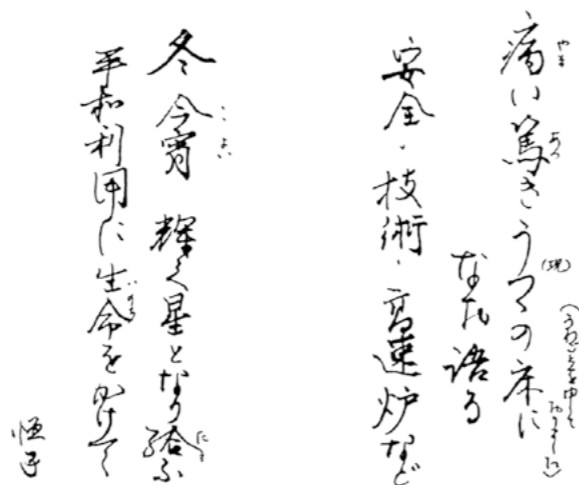 病い篤きうつつの床に
なお語る
安全・技術・高速炉など
冬今宵 輝く星となり給ふ
平和利用に生命をかけて
恒子